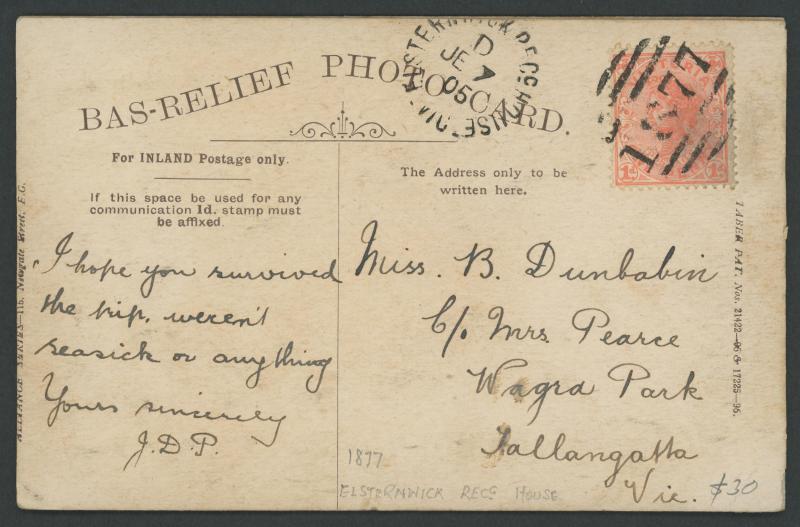 BAS-RELIEF PHOTO CARD.
ELSTERNWICK RECG HOUSE
D
JE 7
05
VIC
1877
For INLAND Postage only.
If this space be used for any
communication 1d. stamp must
be affixed.
The Address only to be
written here.
I hope you survived
the trip, weren't
seasick or anything
Yours sincerely
J.D.P.
Miss. B. Dunbabin
C/o Mrs Pearce
Wagra Park
Tallangatta
Vic.
$30
1877
ELSTERNWICK RECG HOUSE
ALLIANCE SERIES—115, Newgate Street, E.C.
TABER PAT. Nos. 21422—06 & 17225—95.